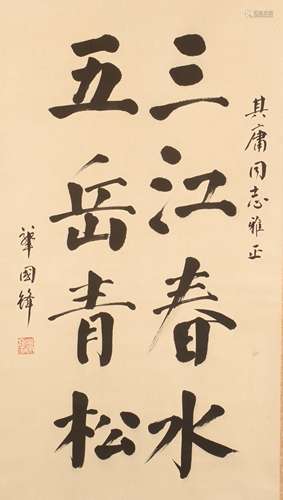 其庸同志雅正
三江春水
五岳青松
华国锋